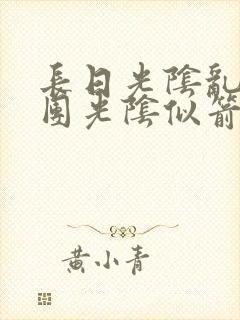 長日光陰亂
園光陰似箭
黄小青